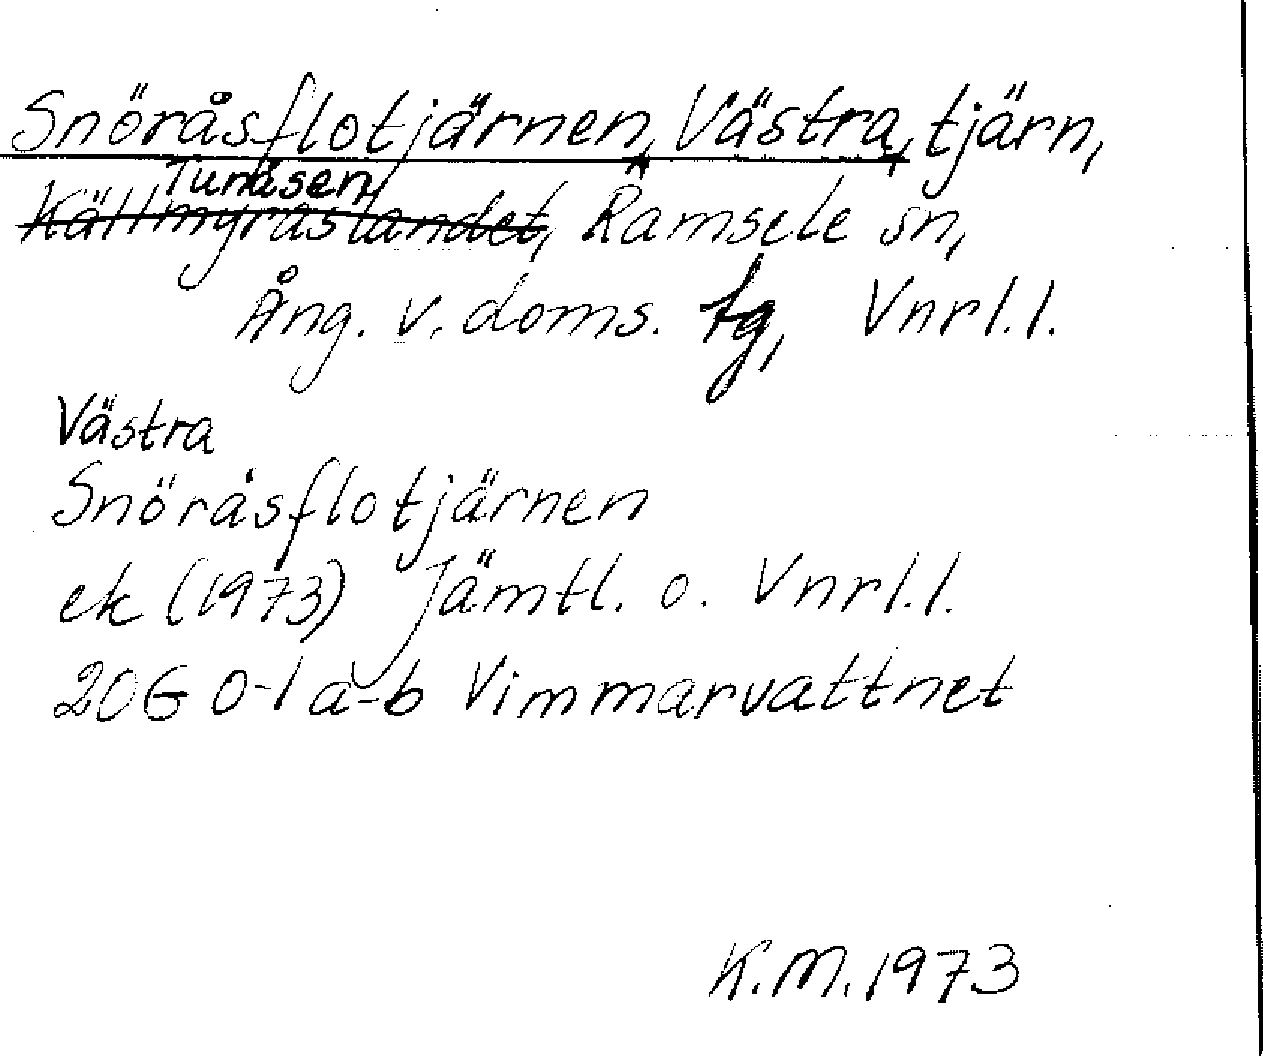 Snöråsflotjärnen, Västra, tjärn,
Tunåsen,
Källmyråslandet, Ramsele sn,
Ång. v. doms. tg, Vnrl.l.
Västra
Snöråsflotjärnen
ek (1973) Jämtl. o. Vnrl.l.
20G 0-1 a-b Vimmarvattnet
K.M. 1973